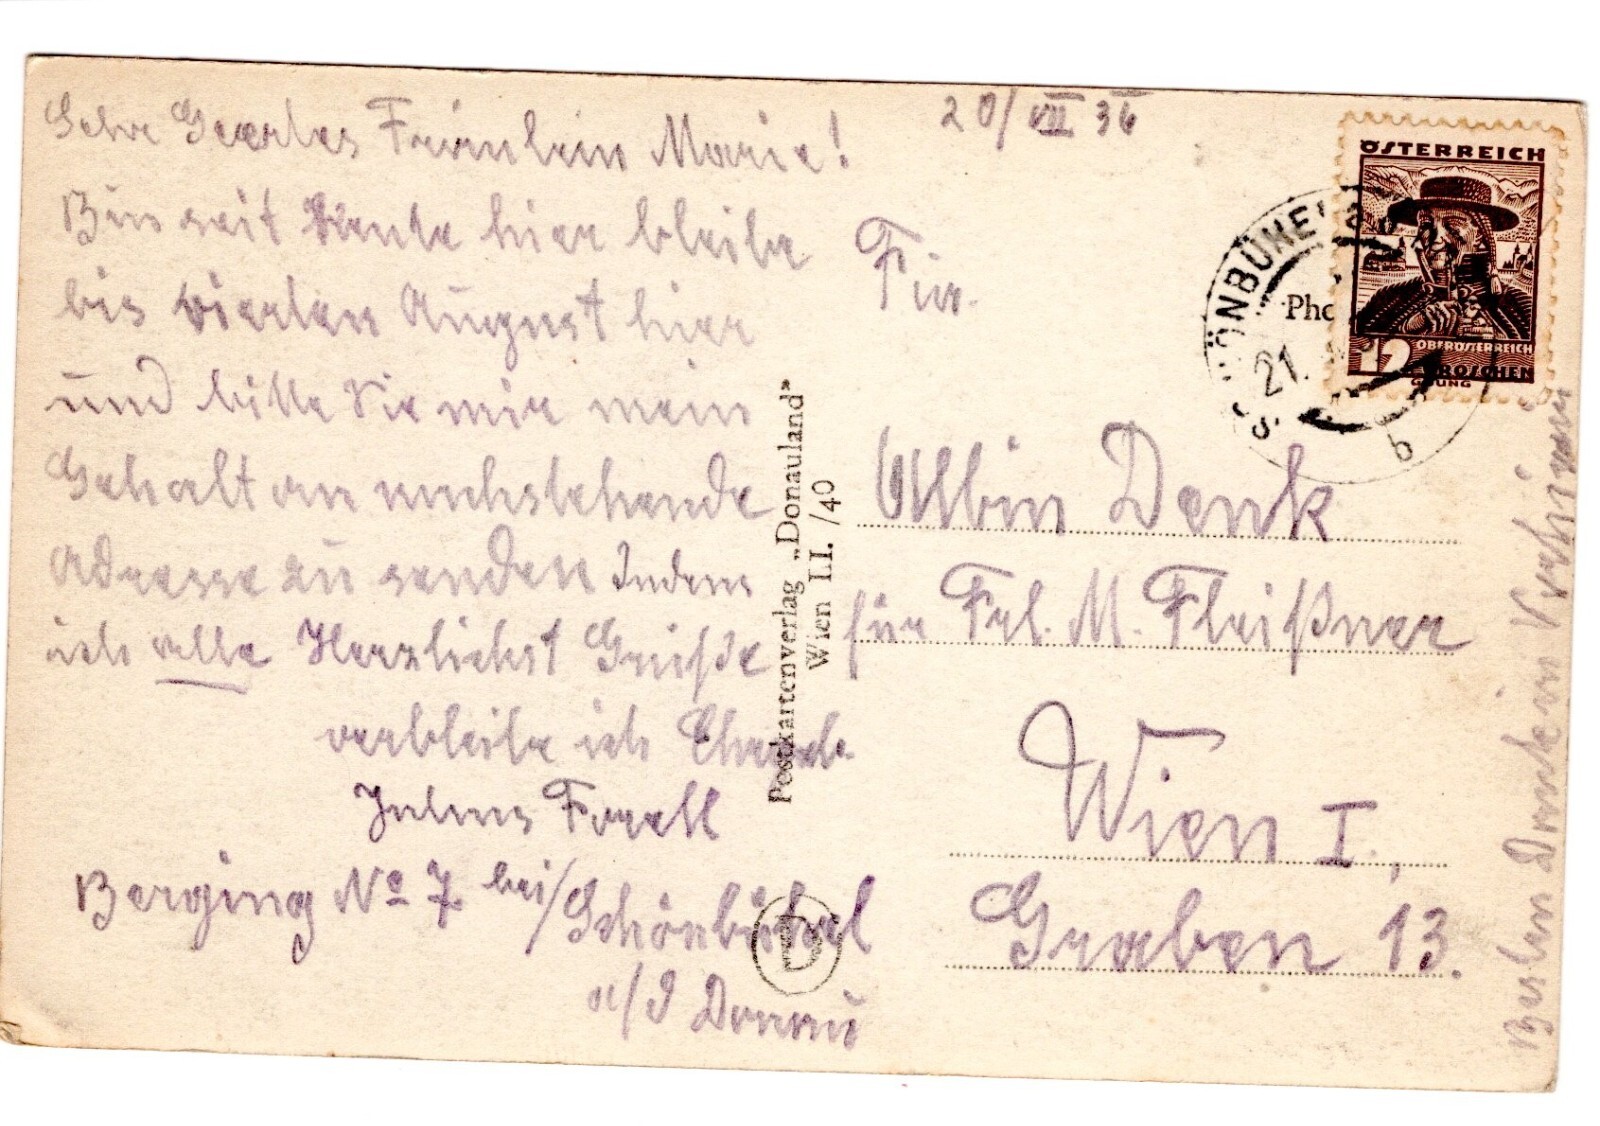 Sehr Geehrtes Fräulein Marie!
20/VII 36
Bin seit Heute hier bleibe
bis vierten August hier
und bitte Sie mir mein
Gehalt an nachstehende
Adresse zu senden Indem
ich alle Herzlichst Grüße
verbleibe ich
Julius
Berging No 7 bei/Schönbühel
a/d Donau
Für
Albin Denk
für Frl. M. Fleißner
Wien I.,
Graben 13.
Besten Dank im
Postkartenverlag „Donauland"
Wien III. /40
D
ÖSTERREICH
12 GROSCHEN
OBERÖSTERREICH
SCHÖNBÜHEL
21.
b
Pho